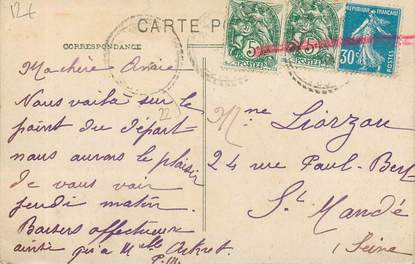 12 €
CARTE PO
CORRESPONDANCE
5c
POSTES
5c
POSTES
RÉPUBLIQUE FRANÇAISE
30c
POSTES
Ma chère Amie
Nous voila sur le
point du départ
nous aurons le plaisir
de vous voir
jeudi matin.
Baisers affectueux
ainsi qu'a Mlle
22
Mme Liorzou
24 rue Paul-Bert
St Mandé
Seine